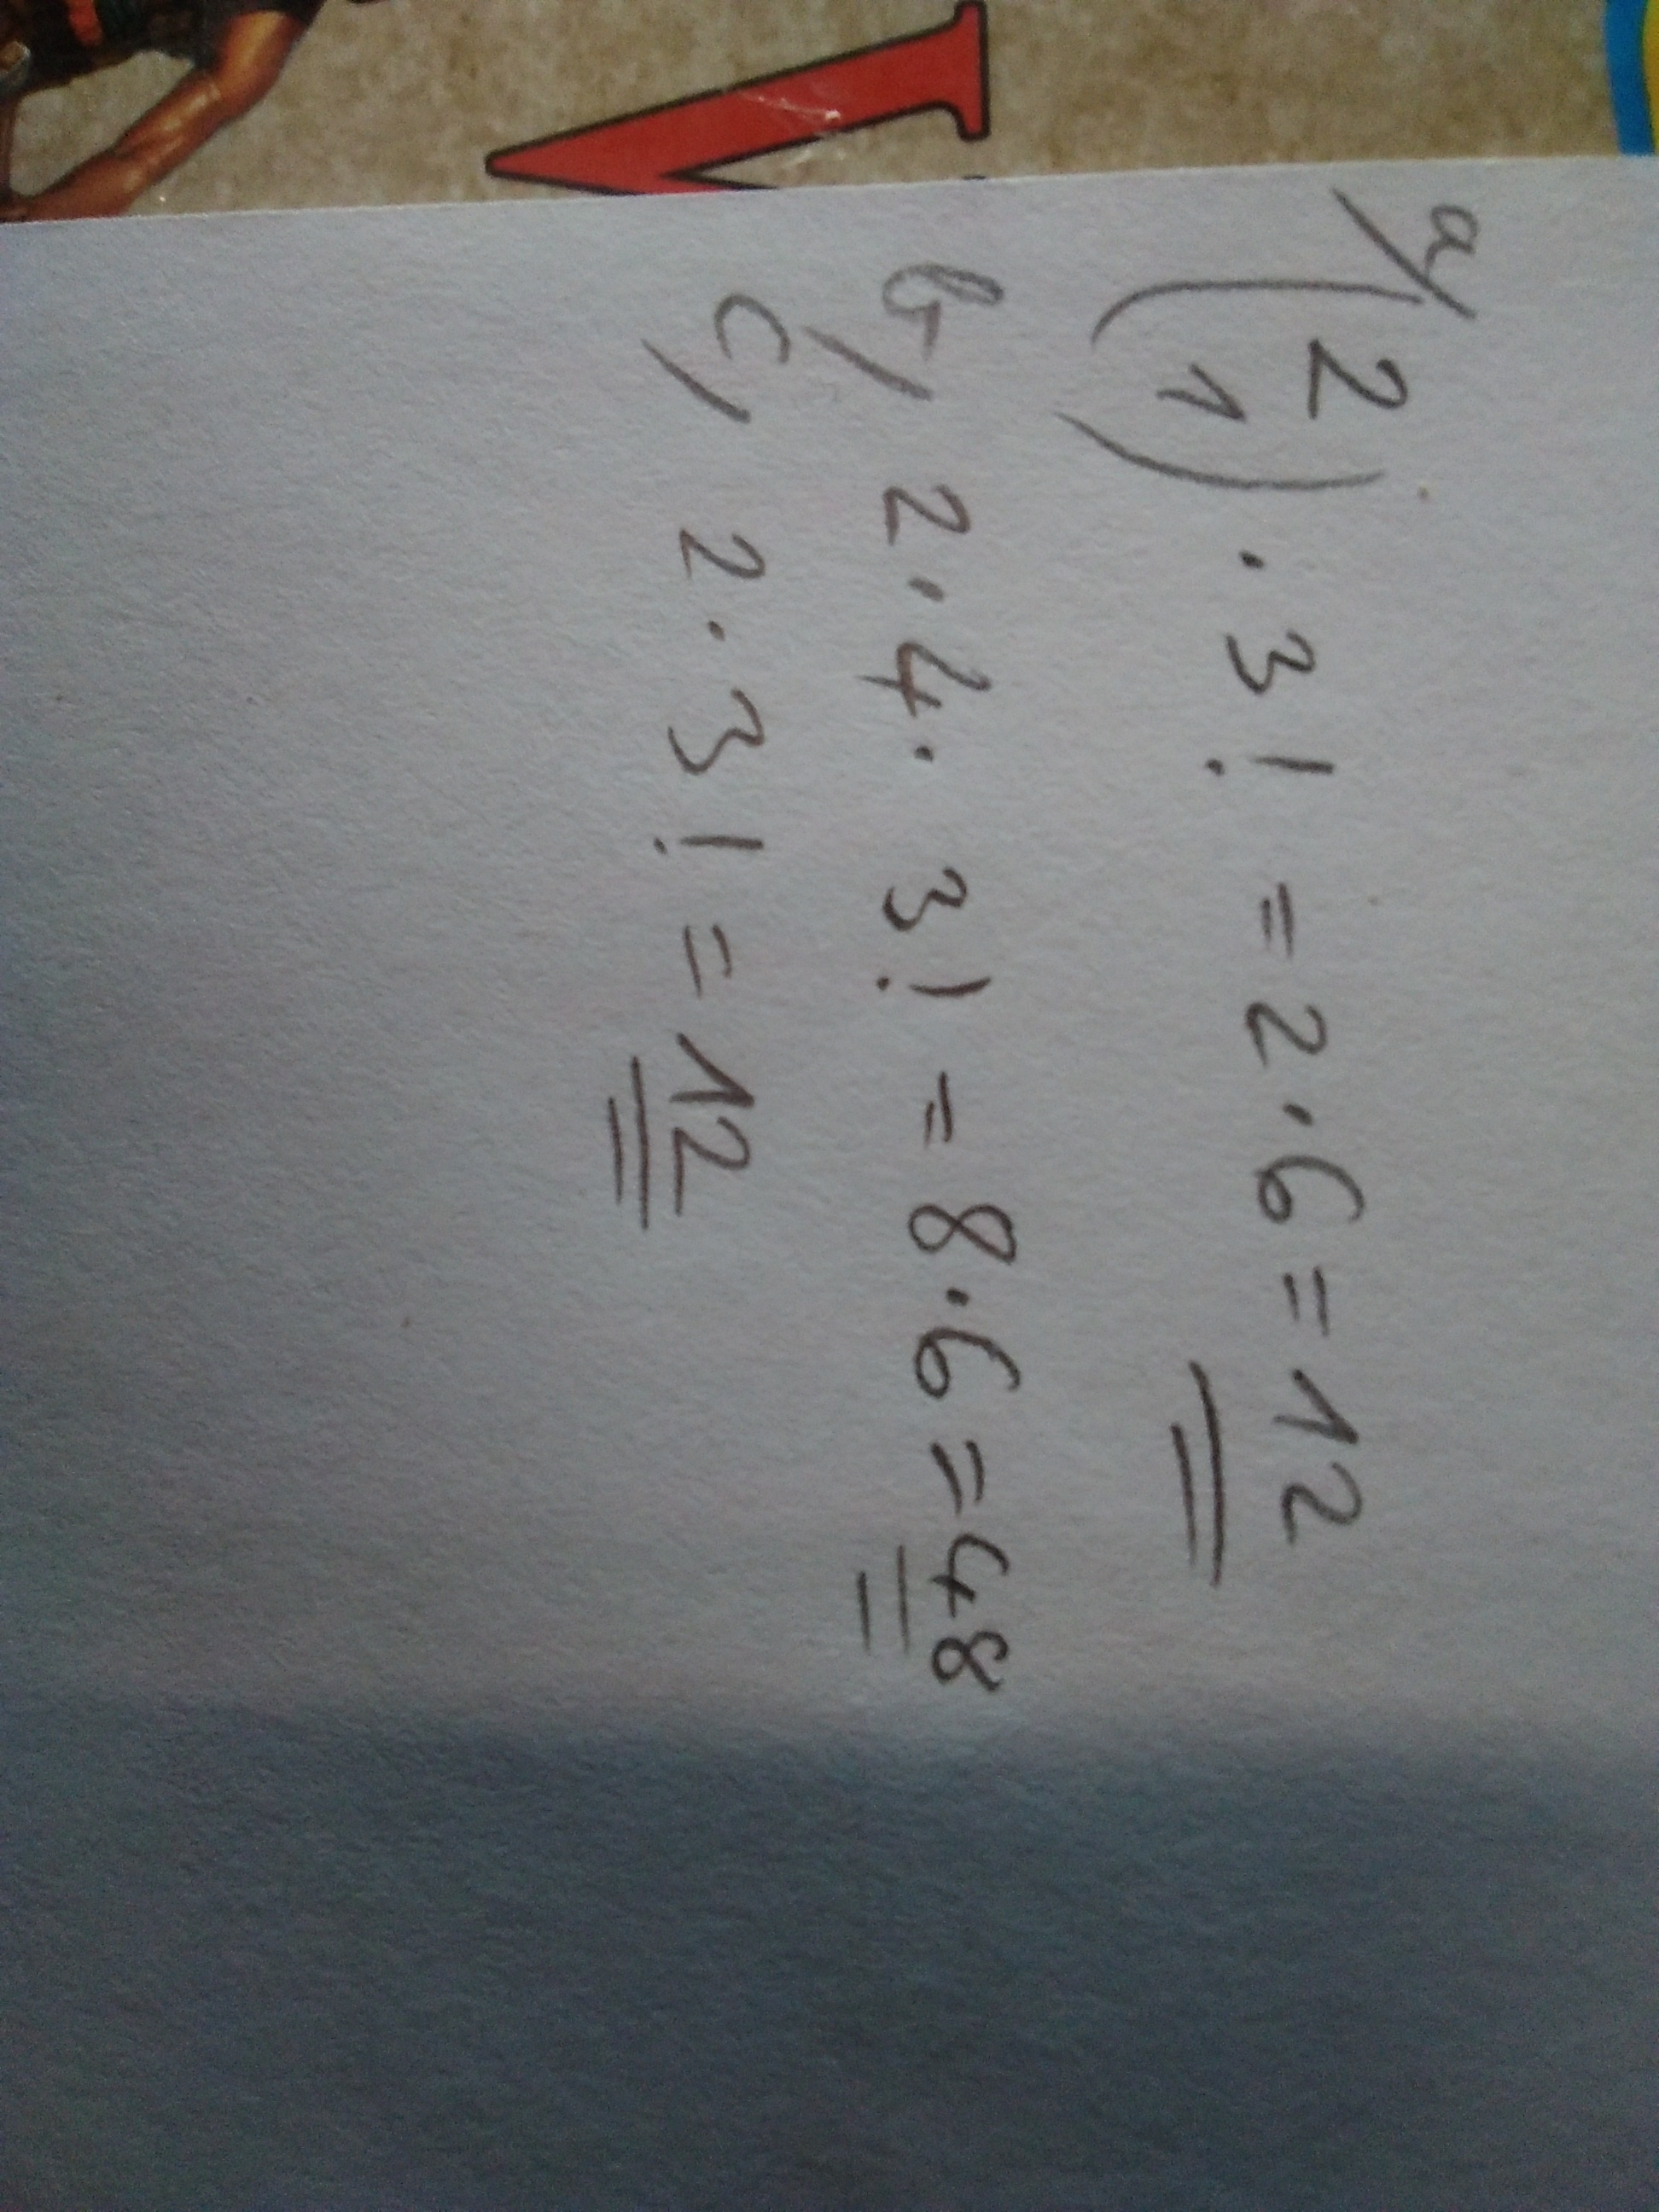 a) (2 1) · 3! = 2 · 6 = 12
b) 2 · 4 · 3! = 8 · 6 = 48
c) 2 · 3! = 12